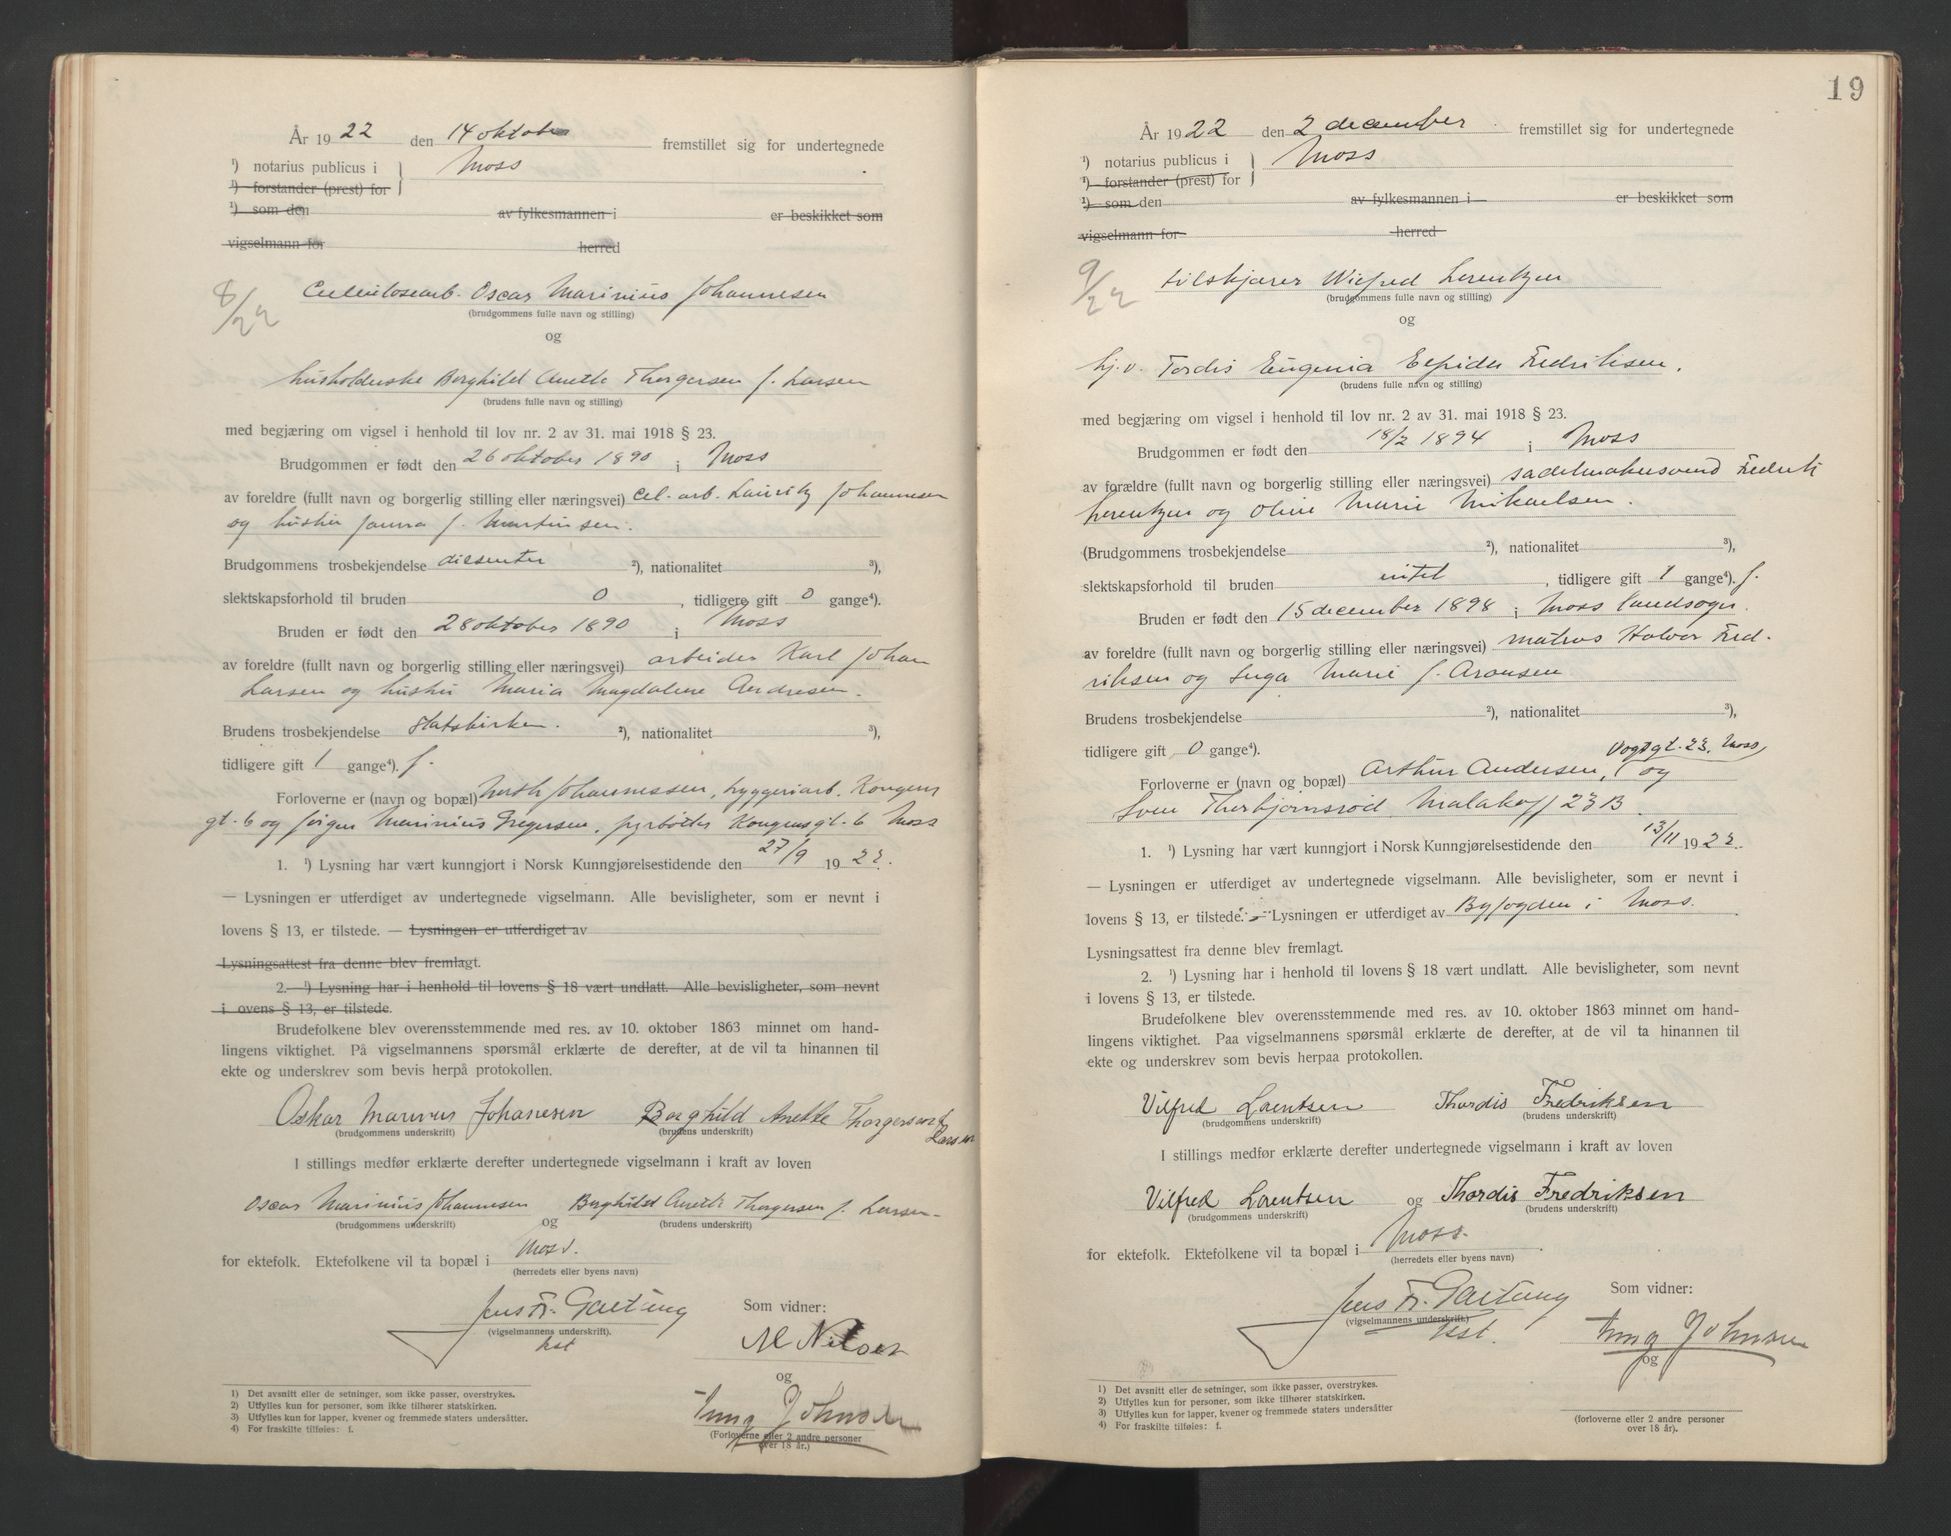 År 1922 den 14 oktober fremstillet sig for undertegnede
¹) notarius publicus i Moss
¹) forstander (prest) for
¹) som den av fylkesmannen i er beskikket som
vigselmann for herred
8/22
Cellulosearb. Oscar Marinius Johannesen
(brudgommens fulle navn og stilling)
og
husholderske Borghild Anette Thorgersen f. Larsen
(brudens fulle navn og stilling)
med begjæring om vigsel i henhold til lov nr. 2 av 31. mai 1918 § 23.
Brudgommen er født den 26 oktober 1890 i Moss
av foreldre (fullt navn og borgerlig stilling eller næringsvei) cel. arb. Lauritz Johannesen
og hustru f. Martinsen.
Brudgommens trosbekjendelse dissenter ²), nationalitet ³),
slektskapsforhold til bruden 0, tidligere gift 0 gange⁴).
Bruden er født den 28 oktober 1890 i Moss
av foreldre (fullt navn og borgerlig stilling eller næringsvei) arbeider Karl Johan
Larsen og hustru Maria Magdalene Andresen.
Brudens trosbekjendelse statskirken. ²), nationalitet ³),
tidligere gift 1 gange⁴). f.
Forloverne er (navn og bopæl) Johannessen, bryggeriarb. Kongens
gt. 6 og Jørgen Marinius Gregersen, fyrbøter Kongensgt. 6 Moss
1. ¹) Lysning har vært kunngjort i Norsk Kunngjørelsestidende den 27/9 1922.
— Lysningen er utferdiget av undertegnede vigselmann. Alle bevisligheter, som er nevnt i
lovens § 13, er tilstede. — Lysningen er utferdiget av
Lysningsattest fra denne blev fremlagt.
2. ¹) Lysning har i henhold til lovens § 18 vært undlatt. Alle bevisligheter, som nevnt
i ovens § 13, er tilstede.
Brudefolkene blev overensstemmende med res. av 10. oktober 1863 minnet om hand-
lingens viktighet. På vigselmannens spørsmål erklærte de derefter, at de vil ta hinannen til
ekte og underskrev som bevis herpå protokollen.
Oskar Marinus Johanesen Borghild Anette Thorgersen f.
Larsen
(brudgommens underskrift) (brudens underskrift)
I stillings medfør erklærte derefter undertegnede vigselmann i kraft av loven
Oscar Marinius Johannesen og Borghild Anette Thorgersen f. Larsen
(brudgommens underskrift) (brudens underskrift)
for ektefolk. Ektefolkene vil ta bopæl i Moss.
(herredets eller byens navn)
Jens Fr. Gaetung Som vidner:
(vigselmannens underskrift).
kst M Nilsen
og
Johnsen
(Forloverne eller 2 andre personer
over 18 år.)
1) Det avsnitt eller de setninger, som ikke passer, overstrykes.
2) Utfylles kun for personer, som ikke tilhører statskirken.
3) Utfylles kun for lapper, kvener og fremmede staters undersåtter.
4) For fraskilte tilføies: f.
19
År 1922 den 2 december fremstillet sig for undertegnede
¹) notarius publicus i Moss
¹) forstander (prest) for
¹) som den av fylkesmannen i er beskikket som
vigselmann for herred
9/22
Wilfred Lorentzen
(brudgommens fulle navn og stilling)
og
hj.v. Tordis Eugenia Elpida Fredriksen.
(brudens fulle navn og stilling)
med begjæring om vigsel i henhold til lov nr. 2 av 31. mai 1918 § 23.
Brudgommen er født den 18/2 1894 i Moss
av forældre (fullt navn og borgerlig stilling eller næringsvei) sadelmakersvend Fredrik
Lorentzen og Oline Marie Mikaelsen.
(Brudgommens trosbekjendelse ²), nationalitet ³),
slektskapsforhold til bruden intet, tidligere gift 1 gange⁴). f.
Bruden er født den 15 december 1898 i Moss landsogn.
av foreldre (fullt navn og borgerlig stilling eller næringsvei) matros Halvor Fred-
riksen og Inga Marie f. Aronsen
Brudens trosbekjendelse ²), nationalitet ³),
tidligere gift 0 gange⁴). Vogtgt. 23, Moss
Forloverne er (navn og bopæl) Arthur Andersen, og
Sven Thorbjørnsrød Malakoff 23 B
1. ¹) Lysning har vært kunngjort i Norsk Kunngjørelsestidende den 13/11 1922.
— Lysningen er utferdiget av undertegnede vigselmann. Alle bevisligheter, som er nevnt i
lovens § 13, er tilstede. — Lysningen er utferdiget av Byfogden i Moss.
Lysningsattest fra denne blev fremlagt.
2. ¹) Lysning har i henhold til lovens § 18 vært undlatt. Alle bevisligheter, som nevnt
i lovens § 13, er tilstede.
Brudefolkene blev overensstemmende med res. av 10. oktober 1863 minnet om hand-
lingens viktighet. Paa vigselmannens spørsmål erklærte de derefter, at de vil ta hinannen til
ekte og underskrev som bevis herpaa protokollen.
Vilfred Lorentsen Thordis Fredriksen
(brudgommens underskrift) (brudens underskrift)
I stillings medfør erklærte derefter undertegnede vigselmann i kraft av loven
Vilfred Lorentsen og Thordis Fredriksen
(brudgommens underskrift) (brudens underskrift)
for ektefolk. Ektefolkene vil ta bopæl i Moss.
(herredets eller byens navn)
Jens Fr. Gaetung Som vidner:
(vigselmannens underskrift)
kst. Johnsen
og
(forloverne eller 2 andre personer
over 18 år).
1) Det avsnitt eller de setninger, som ikke passer, overstrykes.
2) Utfylles kun for personer, som ikke tilhører statskirken.
3) Utfylles kun for lapper, kvener og fremmede staters undersåtter
4) For fraskilte tilføies: f.